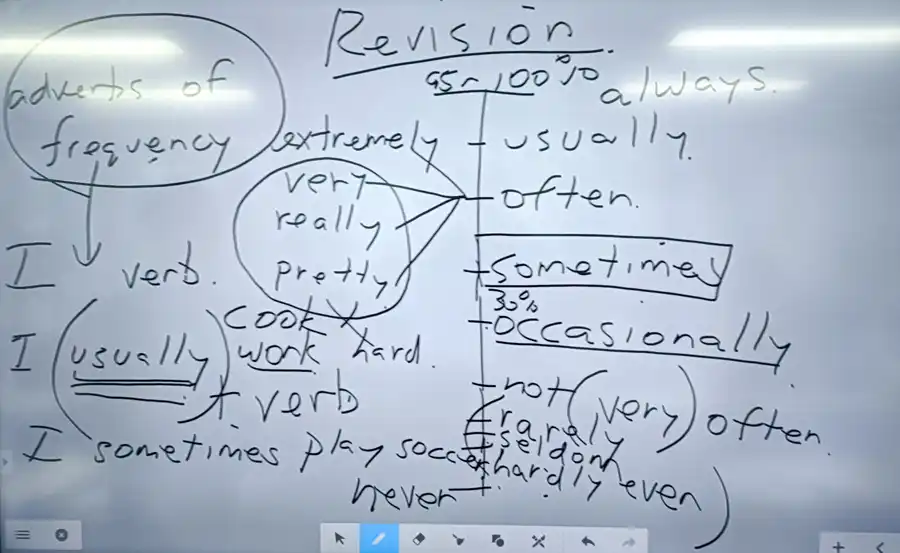 Revision
95~100%
always.
adverbs of
frequency
extremely
very
really
pretty
usually.
often.
sometimes
30%
occasionally
not (very) often.
rarely
seldom
hardly even)
never
I verb.
cook
I (usually) work hard.
+ verb
I sometimes play soccer